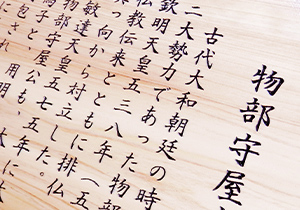 物部守屋
古代大和朝廷の時
二大勢力であった物部
欽明天皇五三八年(五
仏教伝来とともに排仏
っ向から対立した。
敏達天皇五七五年に
馬子と、守屋公も
包され、用明